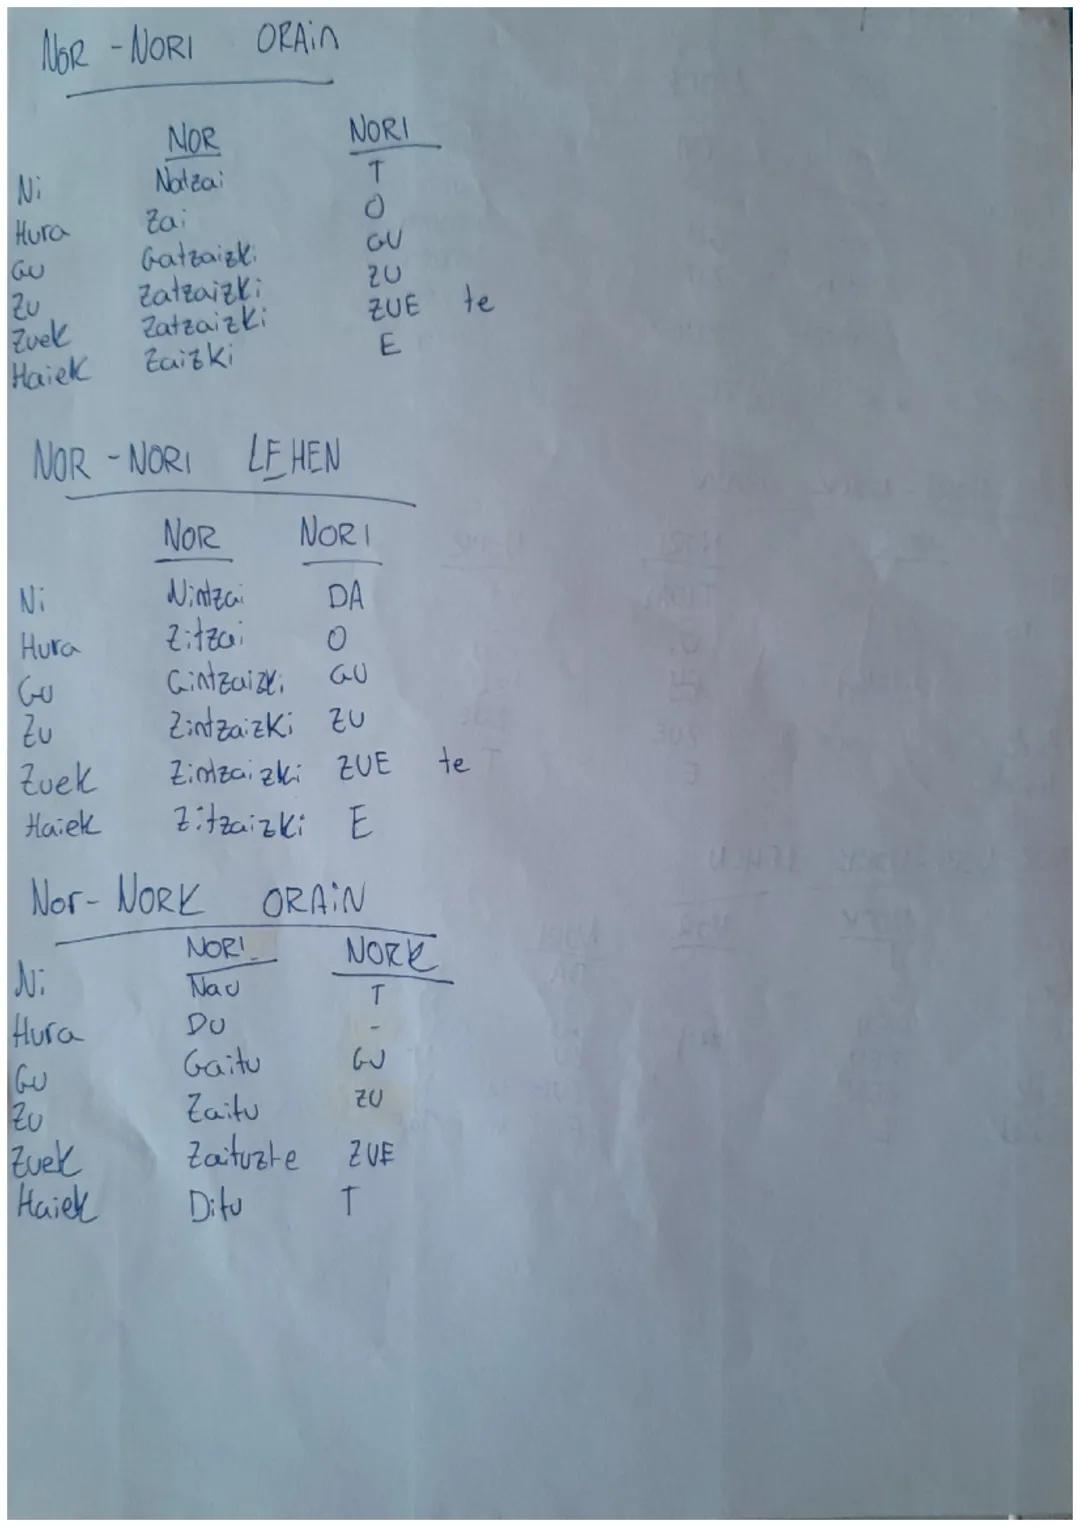 NOR - NORI ORAIN
NOR NORI
Ni Natzai T
Hura Zai O
Gu Gatzaizki GU
Zu Zatzaizki ZU
Zuek Zatzaizki ZUE te
Haiek Zaizki E
NOR - NORI LEHEN
NOR NORI
Ni Nintzai DA
Hura Zitzai O
Gu Gintzaizki GU
Zu Zintzaizki ZU
Zuek Zintzaizki ZUE te
Haiek Zitzaizki E
Nor - NORK ORAIN
NORI NORK
Ni Nau T
Hura DU -
Gu Gaitu GU
Zu Zaitu ZU
Zuek Zaituzte ZUE
Haiek Ditu T